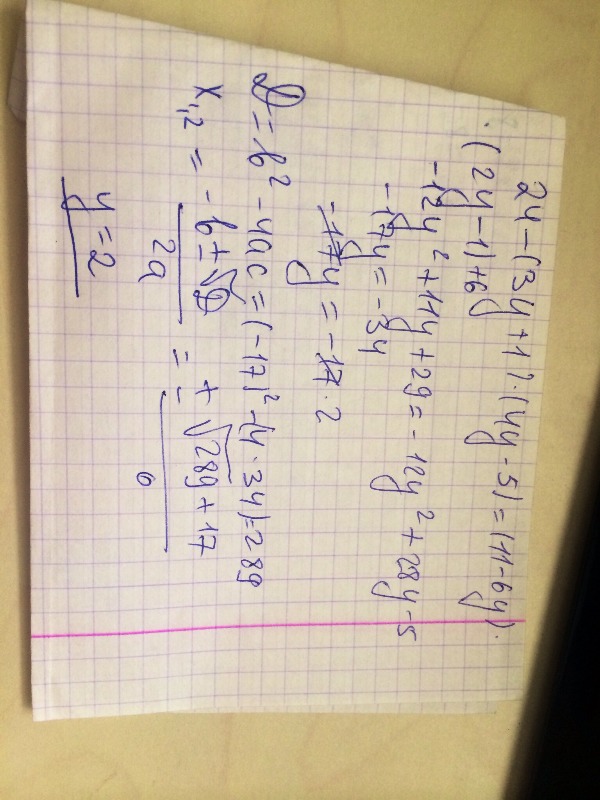 24-(3y+1)·(4y-5)=(11-6y)·
·(2y-1)+6y
-12y²+11y+29=-12y²+28y-5
-17y=-34
-17y=-17·2
D=b²-4ac=(-17)²-(4·34)=289
x₁,₂ = -b±√D / 2a = ± √289+17 / 0
y=2